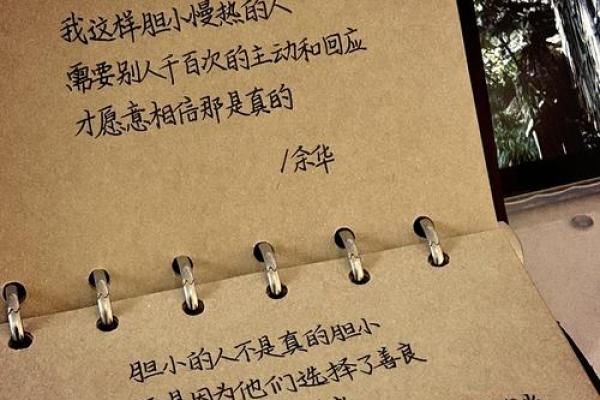 我这样胆小慢热的人
需要别人千百次的主动和回应
才愿意相信那是真的
/余华
胆小的人不是真的胆小
是因为他们选择了善良